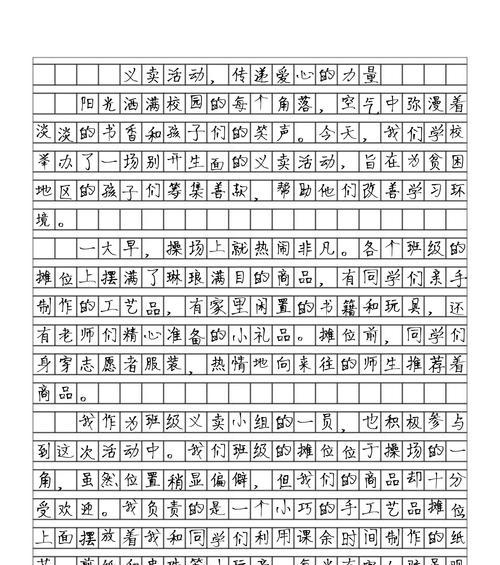 义卖活动，传递爱心的力量
阳光洒满校园的每个角落，空气中弥漫着
淡淡的书香和孩子们的笑声。今天，我们学校
举办了一场别开生面的义卖活动，旨在为贫困
地区的孩子们筹集善款，帮助他们改善学习环
境。
一大早，操场上就热闹非凡。各个班级的
摊位上摆满了琳琅满目的商品，有同学们亲手
制作的工艺品，有家里闲置的书籍和玩具，还
有老师们精心准备的小礼品。摊位前，同学们
身穿志愿者服装，热情地向来往的师生推荐着
商品。
我作为班级义卖小组的一员，也积极参与
到这次活动中。我们班级的摊位位于操场的一
角，虽然位置稍显偏僻，但我们的商品却十分
受欢迎。我负责的是一个小巧的手工艺品摊位
上面摆放着我和同学们利用课余时间制作的纸